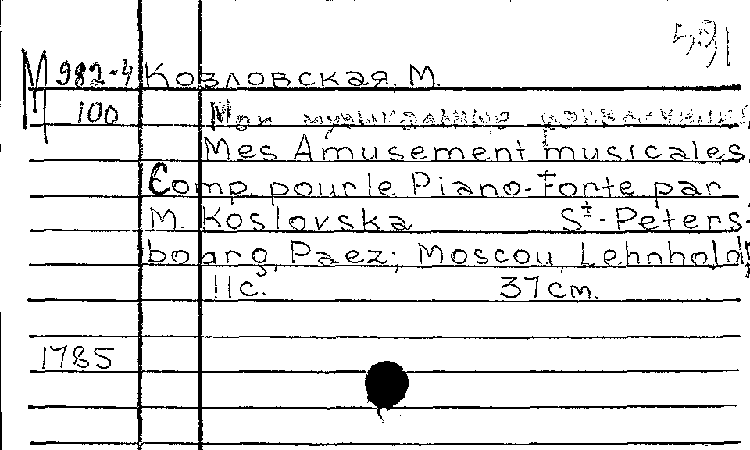 М 982-4 Козловская М.
100 Мои музыкальные
Mes Amusement musicales.
Comp pour le Piano-Forte par
M. Koslovska St-Peters-
bourg, Paez; Moscou, Lehnhold,
11с. 37cm.
1785